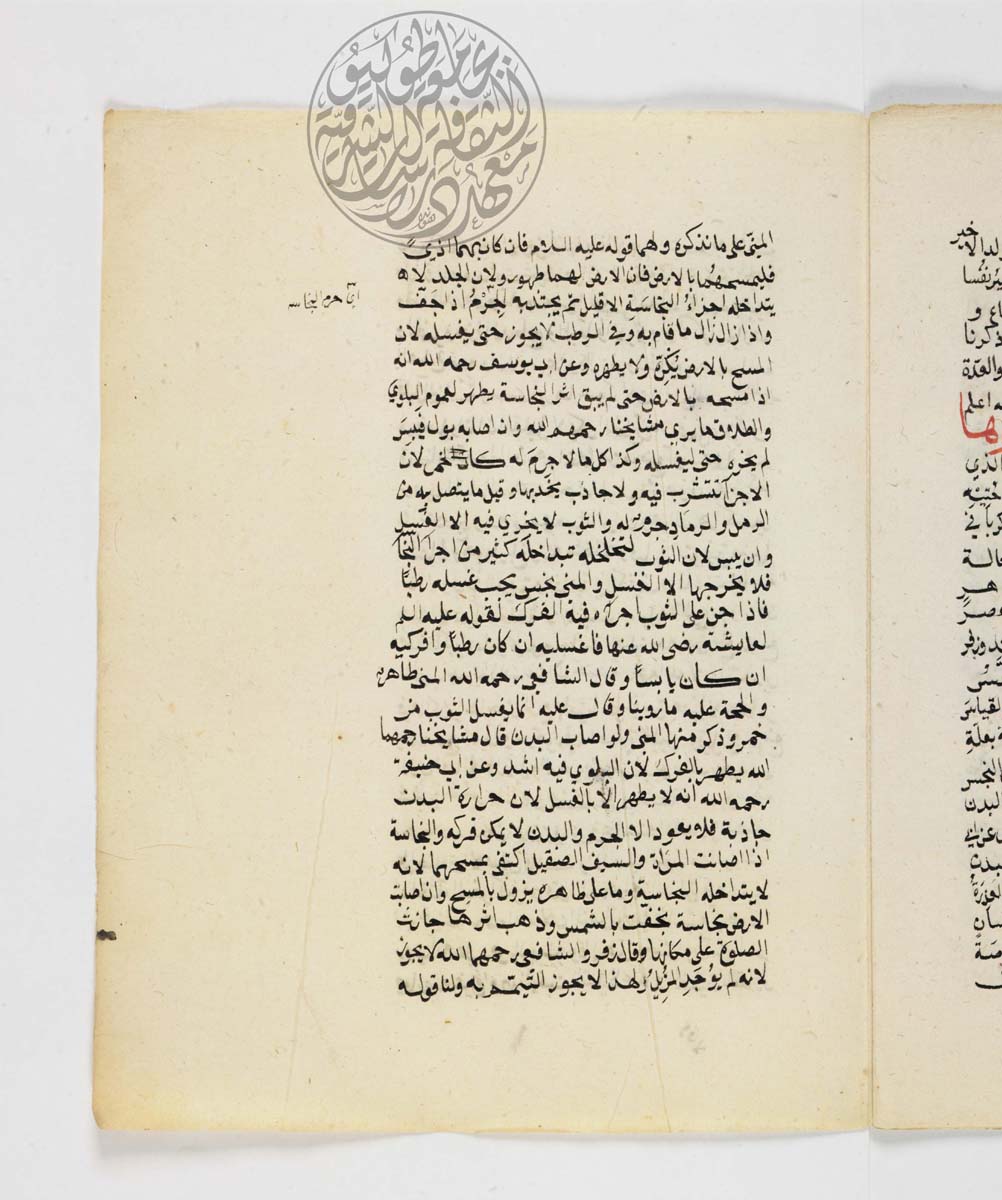 المني على ما نذكره ولهما قوله عليه السلام فان كان بهما اذي
فليمسحهما بالارض فان الارض لهما طهور ولان الجلد لا
يتداخله اجزاء النجاسة الا قليل ثم يجتذبه الجرم اذا جف
واذا زال زال ما قام به وفي الرطب لا يجوز حتى يغسله لان
المسح بالارض يكثره ولا يطهره وعن ابي يوسف رحمه الله انه
اذا مسحه بالارض حتى لم يبق اثر النجاسة يطهر لعموم البلوي
واطلاق ما يري مشايخنا رحمهم الله وان اصابه بول فيبس
لم يجزه حتى يغسله وكذا كل ما لا جرم له كالخمر لان
الاجزا تتشرب فيه ولا جاذب يجذبها وقيل ما يتصل به من
الرمل والرماد جرم له والثوب لا يجزي فيه الا الغسل
وان يبس لان الثوب لتخلخله تبداخله كثير من اجزا النجا
فلا يخرجها الا الغسل والمني نجس يجب غسله رطبا
فاذا جن على الثوب اجزاء فيه الفرك لقوله عليه السلم
لعايشة رضى الله عنها فاغسليه ان كان رطبا وافركيه
ان كان يابسا وقال الشافعي رحمه الله المني طاهر
والحجة عليه ما روينا وقال عليه انما يغسل الثوب من
خمر وذكر منها المني ولو اصاب البدن قال مشايخنا رحمهما
الله يطهر بالفرك لان البلوي فيه اشد وعن ابي حنيفة
رحمه الله انه لا يطهر الا بالغسل لان حرارة البدن
جاذبة فلا يعود الا الجرم والبدن لا يمكن فركه والنجاسة
اذا اصابت المراة والسيف الصقيل اكتفي بمسحهما لانه
لا يتداخله النجاسة وما على ظاهره يزول بالمسح وان اصابت
الارض نجاسة نجفت بالشمس وذهب اثرها جازت
الصلوة على مكانها وقال زفر والشافعي رحمهما الله لا يجوز
لانه لم يوجد المزيل ولهذا لا يجوز التيمم به ولنا قوله
اي جرم النجاسه
خير
ولد الا
ذكرنا
والعدة
اعلم
الذي
القياس
النجس
البدن
جامعة طوكيو
معهد دراسات الثقافة الشرقية